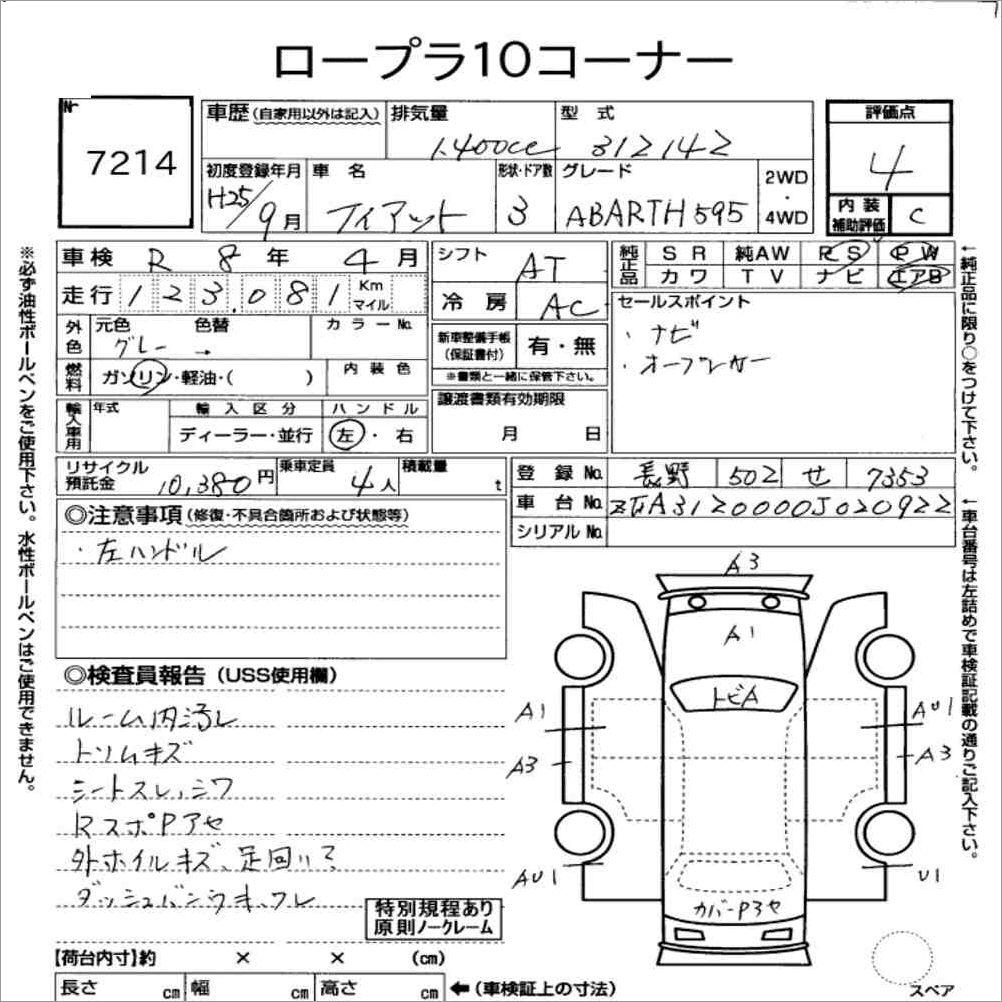 ロープラ10コーナー
№
7214
車歴(自家用以外は記入)
排気量
1.400cc
型式
312142
評価点
4
初度登録年月
H25/9月
車名
フィアット
形状・ドア数
3
グレード
ABARTH595
2WD
・
4WD
内装
補助評価
C
※必ず油性ボールペンをご使用下さい。水性ボールペンはご使用できません。
車検 R 8年 4月
シフト
AT
純正品
SR 純AW PS PW
カワ TV ナビ エアB
走行 123,081 Km
マイル
冷房
AC
セールスポイント
・ナビ
・オープンカー
外色
元色
グレー
色替
→
カラーNo.
新車整備手帳
(保証書付)
有・無
※書類と一緒に保管下さい。
燃料
ガソリン・軽油・( )
内装色
譲渡書類有効期限
月 日
輸入車用
年式
輸入区分
ディーラー・並行
ハンドル
左・右
リサイクル
預託金
10,380円
乗車定員
4人
積載量
t
登録No.
長野 502 せ 7353
車台No.
ZFA3120000J020922
シリアルNo.
←純正品に限り○をつけて下さい。
←車台番号は左詰めで車検証記載の通りご記入下さい。
◎注意事項(修復・不具合箇所および状態等)
・左ハンドル
◎検査員報告(USS使用欄)
ルーム内汚レ
トリムキズ
シートスレ、シワ
RスポPアセ
外ホイルキズ、足回リサ
特別規程あり
原則ノークレーム
A3
A1
トビA
A1
AU1
A3
A3
AU1
U1
スペア
【荷台内寸】約 × × (cm)
長さ cm 幅 cm 高さ cm
←(車検証上の寸法)